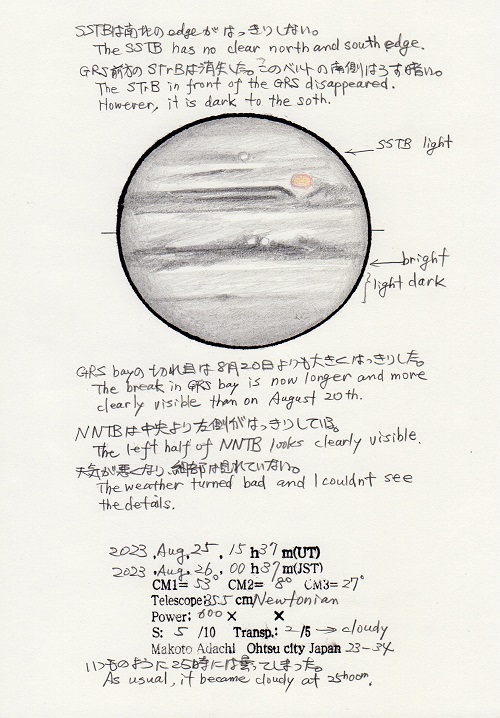 SSTBは南北のedgeがはっきりしない。
The SSTB has no clear north and south edge.
GRS前方のSTrBは消失した。このベルトの南側はうす暗い。
The STrB in front of the GRS disappeared.
However, it is dark to the soth.
SSTB light
bright
light dark
GRS bayの切れ目は8月20日よりも大きくはっきりした。
The break in GRS bay is now longer and more
clearly visible than on August 20th.
NNTBは中央より左側がはっきりしている。
The left half of NNTB looks clearly visible.
天気が悪くなり、細部は見れていない。
The weather turned bad and I couldnt see
the details.
2023 ,Aug,25 , 15 h37 m(UT)
2023 ,Aug,26 , 00 h37 m(JST)
CM1= 53° CM2= 8° CM3= 27°
Telescope:35.5 cm/Newtonian
Power: 600 × ×
S: 5 /10 Transp.: 2 /5 → cloudy
Makoto Adachi Ohtsu city Japan 23-34
いつものように25時には曇ってしまった。
As usual, it became cloudy at 25hoom.